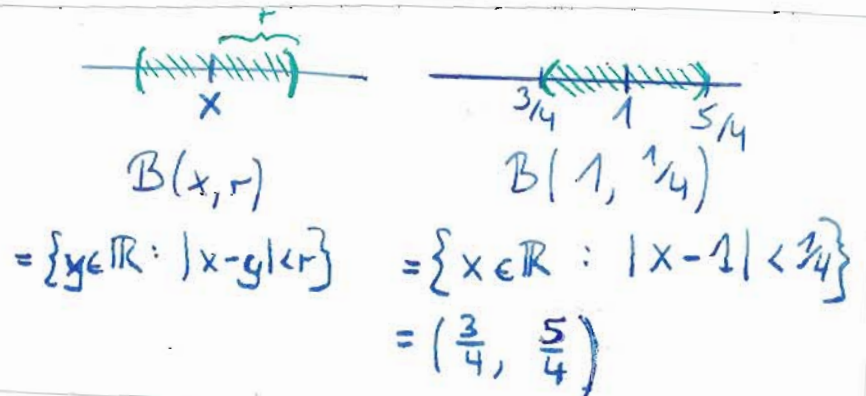 r
x
B(x, r)
= {y ∈ ℝ : |x-y| < r}
3/4 1 5/4
B(1, 1/4)
= {x ∈ ℝ : |x-1| < 1/4}
= (3/4, 5/4)